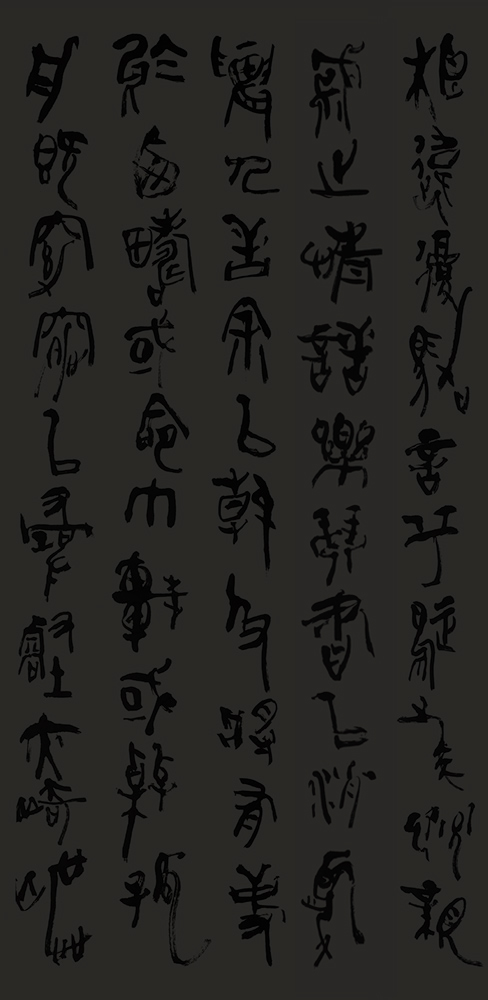 相違復駕言兮焉求悅親
戚之情話樂琴書以消憂
農人告余以春及將有事
於西疇或命巾車或棹孤
舟既窈窕以尋壑亦崎嶇